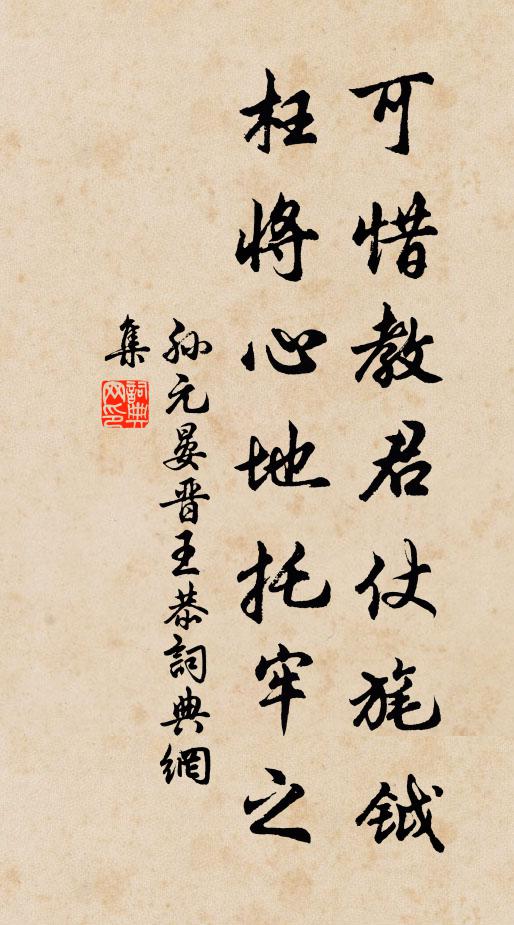 可惜教君仗旄鉞
枉將心地托牢之
孫元晏晋王恭詞典網
集
詞典网印